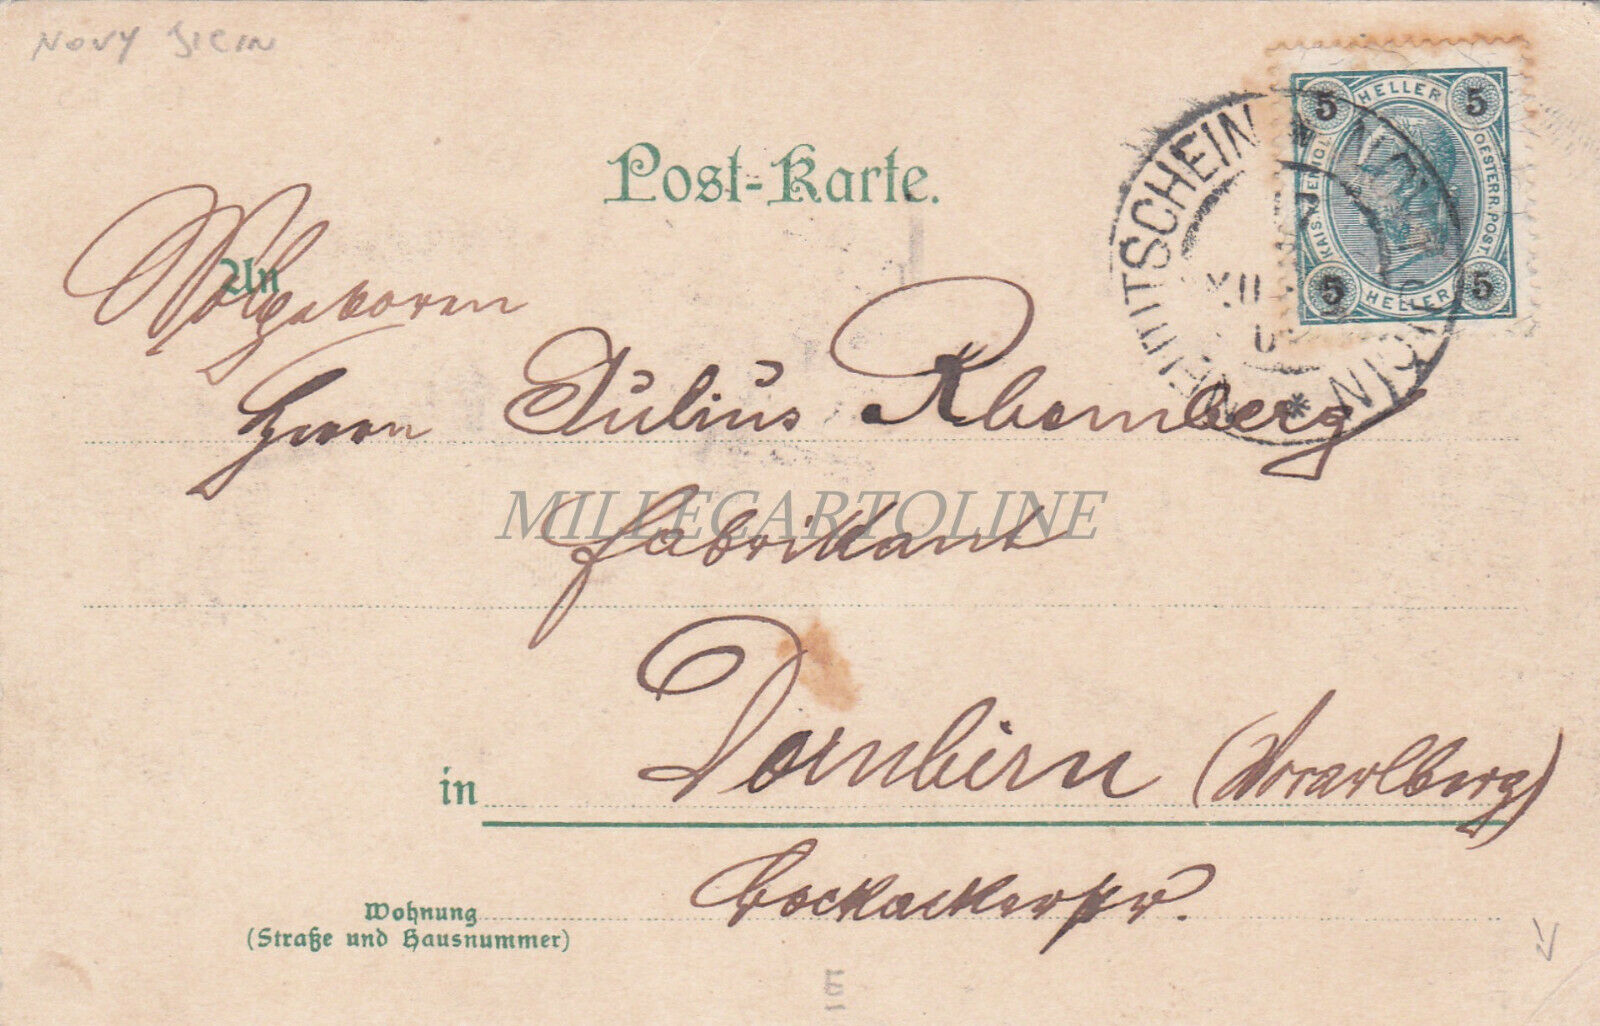 NOVY JICIN
5 HELLER 5
KAIS. KÖNIGL. OESTERR. POST.
5 HELLER 5
NEUTITSCHEIN
XII
JICIN *
Post-Karte.
An
Wolgeboren
Herrn Julius Rhomberg
MILLECARTOLINE
Fabrikant
in Dornbirn (Vorarlberg)
Wohnung
(Straße und Hausnummer)